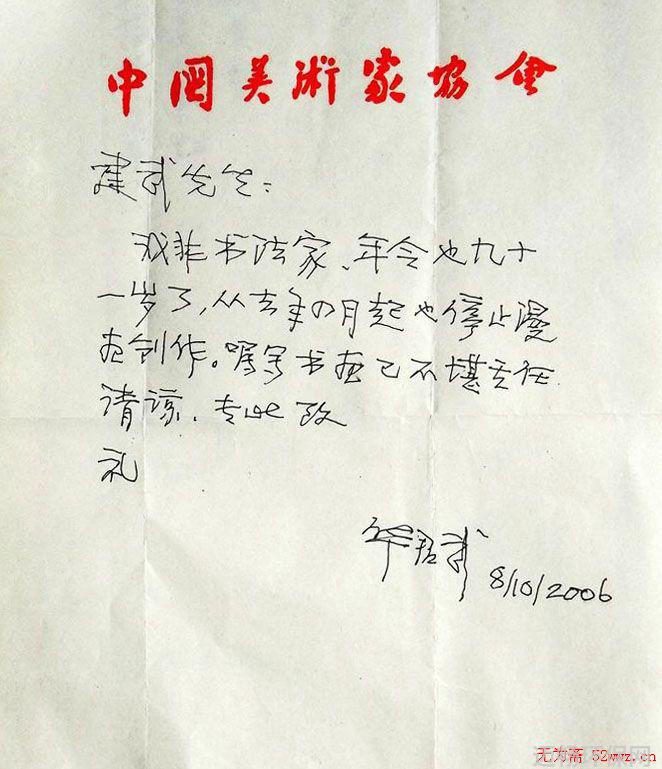 中国美術家協會
建武先生:
我非书法家、年令也九十
一岁了,从去年四月起也停止漫
画创作。嘱写书画已不堪重任
请谅、专此致
礼
华君武
8/10/2006
无为斋 52wwz.cn